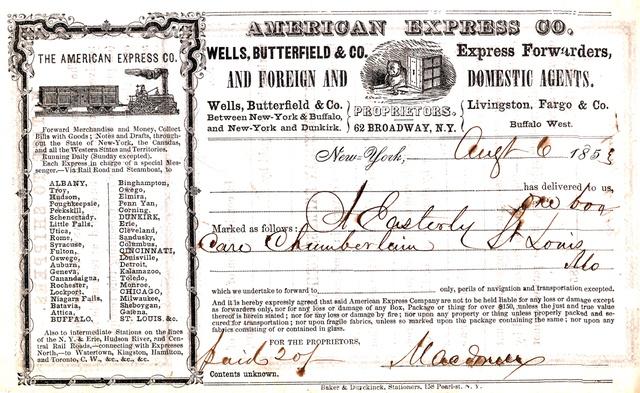 THE AMERICAN EXPRESS CO.
Forward Merchandise and Money, Collect
Bills with Goods; Notes and Drafts, through-
out the State of New-York, the Canadas,
and all the Western States and Territories.
Running Daily (Sunday excepted).
Each Express in charge of a special Mes-
senger,—Via Rail Road and Steamboat, to
ALBANY,
Troy,
Hudson,
Poughkeepsie,
Peekskill,
Schenectady,
Little Falls,
Utica,
Rome,
Syracuse,
Fulton,
Oswego,
Auburn,
Geneva,
Canandaigua,
Rochester,
Lockport,
Niagara Falls,
Batavia,
Attica,
BUFFALO,
Binghampton,
Owego,
Elmira,
Penn Yan,
Corning,
DUNKIRK,
Erie,
Cleveland,
Sandusky,
Columbus,
CINCINNATI,
Louisville,
Detroit,
Kalamazoo,
Toledo,
Monroe,
CHICAGO,
Milwaukee,
Sheboygan,
Galena,
ST. LOUIS, &c.
Also to intermediate Stations on the lines
of the N. Y. & Erie, Hudson River, and Cen-
tral Rail Roads,—connecting with Expresses
North,—to Watertown, Kingston, Hamilton,
and Toronto, C. W., &c., &c., &c.
AMERICAN EXPRESS CO.
WELLS, BUTTERFIELD & CO. Express Forwarders,
AND FOREIGN AND DOMESTIC AGENTS.
Wells, Butterfield & Co. PROPRIETORS. Livingston, Fargo & Co.
Between New-York & Buffalo,
and New-York and Dunkirk. 62 BROADWAY, N.Y. Buffalo West.
New-York, Augt 6 185
has delivered to us,
one box
Marked as follows: A Easterly
Care Chamberlain St Louis
Mo
which we undertake to forward to only, perils of navigation and transportation excepted.
And it is hereby expressly agreed that said American Express Company are not to be held liable for any loss or damage except
as forwarders only, nor for any loss or damage of any Box, Package or thing for over $150, unless the just and true value
thereof is herein stated; nor for any loss or damage by fire; nor upon any property or thing unless properly packed and se-
cured for transportation; nor upon fragile fabrics, unless so marked upon the package containing the same; nor upon any
fabrics consisting of or contained in glass.
FOR THE PROPRIETORS,
paid
Contents unknown.
Baker & Duyckinck, Stationers, 158 Pearl-st. N. Y.